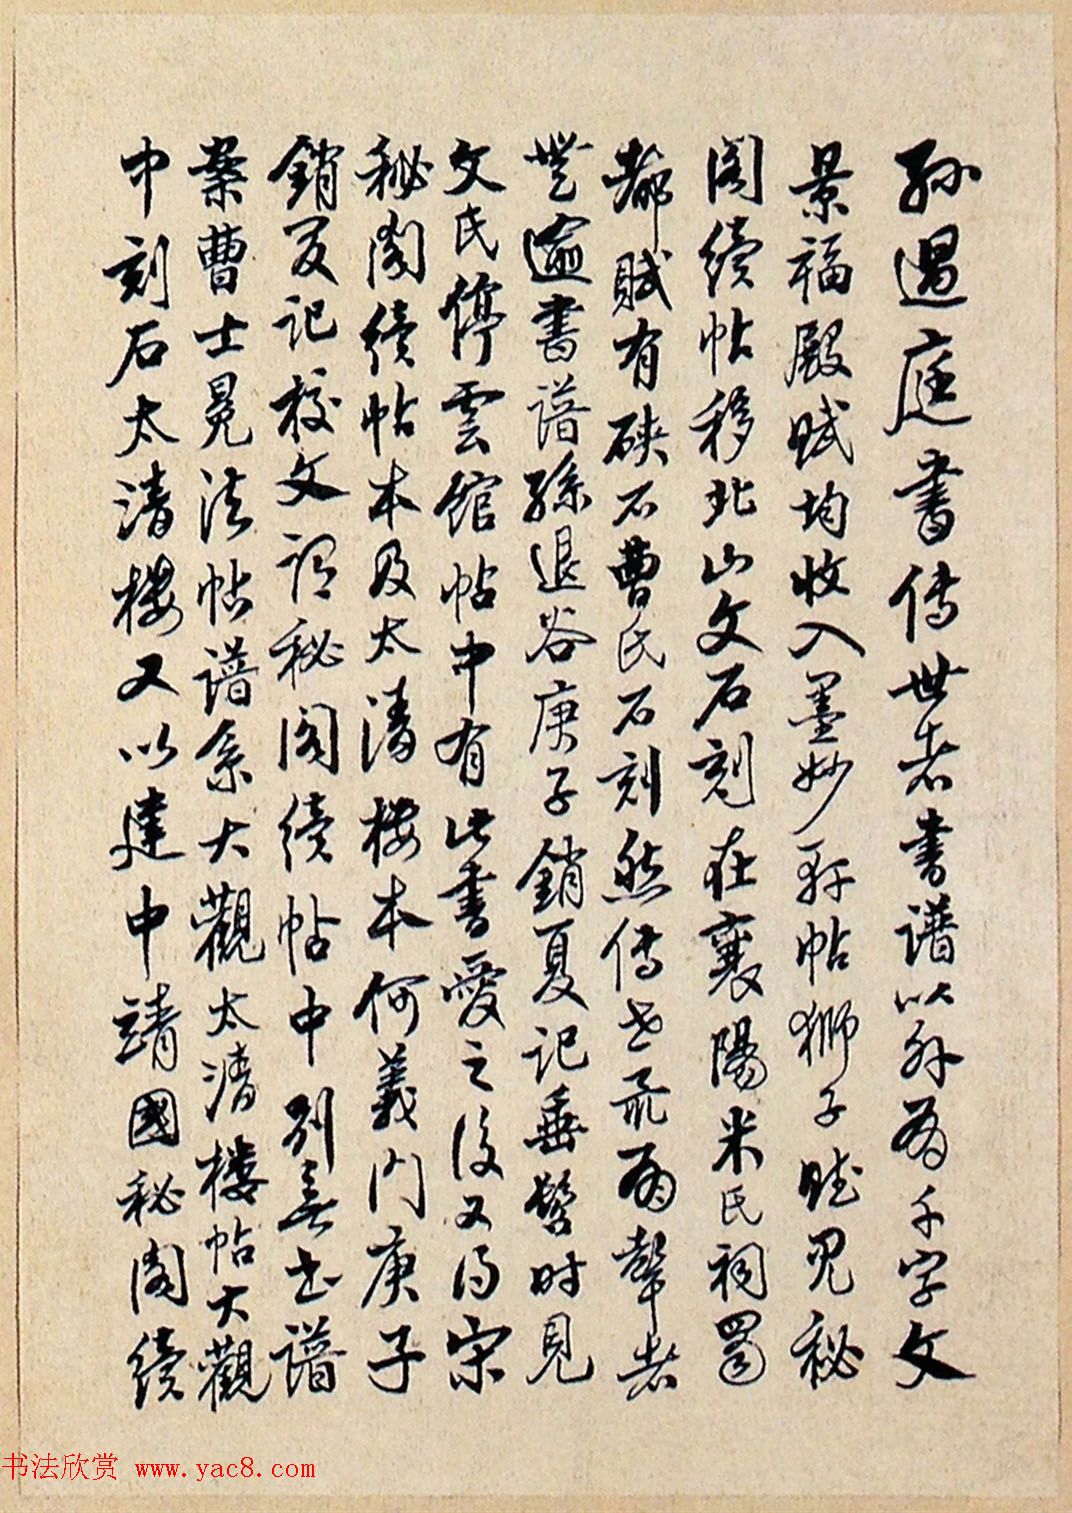 孫過庭書傳世者書譜以外為千字文
景福殿賦均收入墨妙軒帖獅子賦見秘
閣續帖移北山文石刻在襄陽米氏祠蜀
都賦有硤石曹氏石刻然傳世最為聲者
莫逾書譜孫退谷庚子銷夏記垂髫時見
文氏停雲館帖中有此書愛之後又得宋
秘閣續帖本及太清樓本何義門庚子
銷夏記校文謂秘閣續帖中別無書譜
案曹士冕法帖譜系大觀太清樓帖大觀
中刻石太清樓又以建中靖國秘閣續
书法欣赏 www.yac8.com